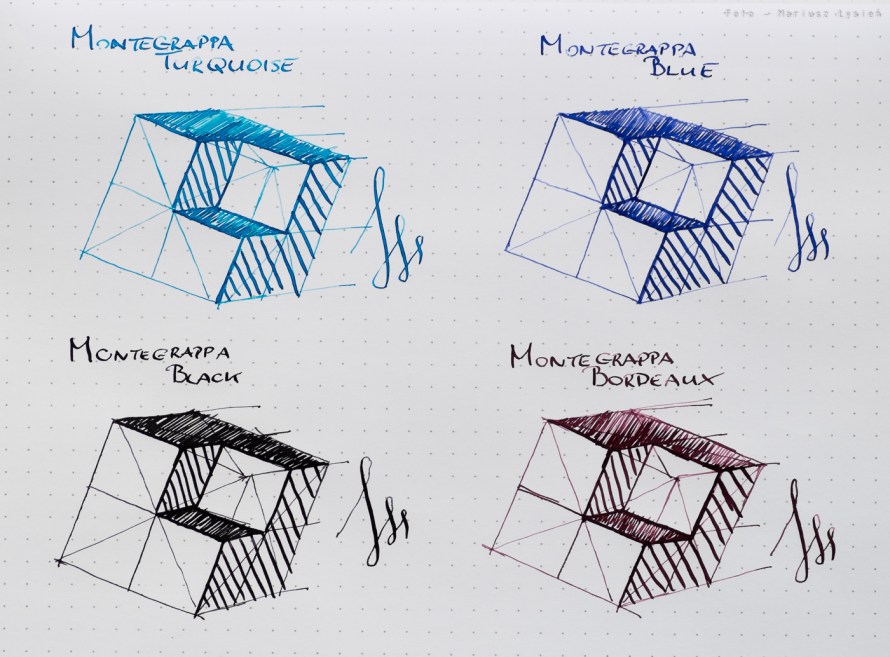 Foto - Mariusz Łysień
MONTEGRAPPA
TURQUOISE
MONTEGRAPPA
BLUE
MONTEGRAPPA
BLACK
MONTEGRAPPA
BORDEAUX